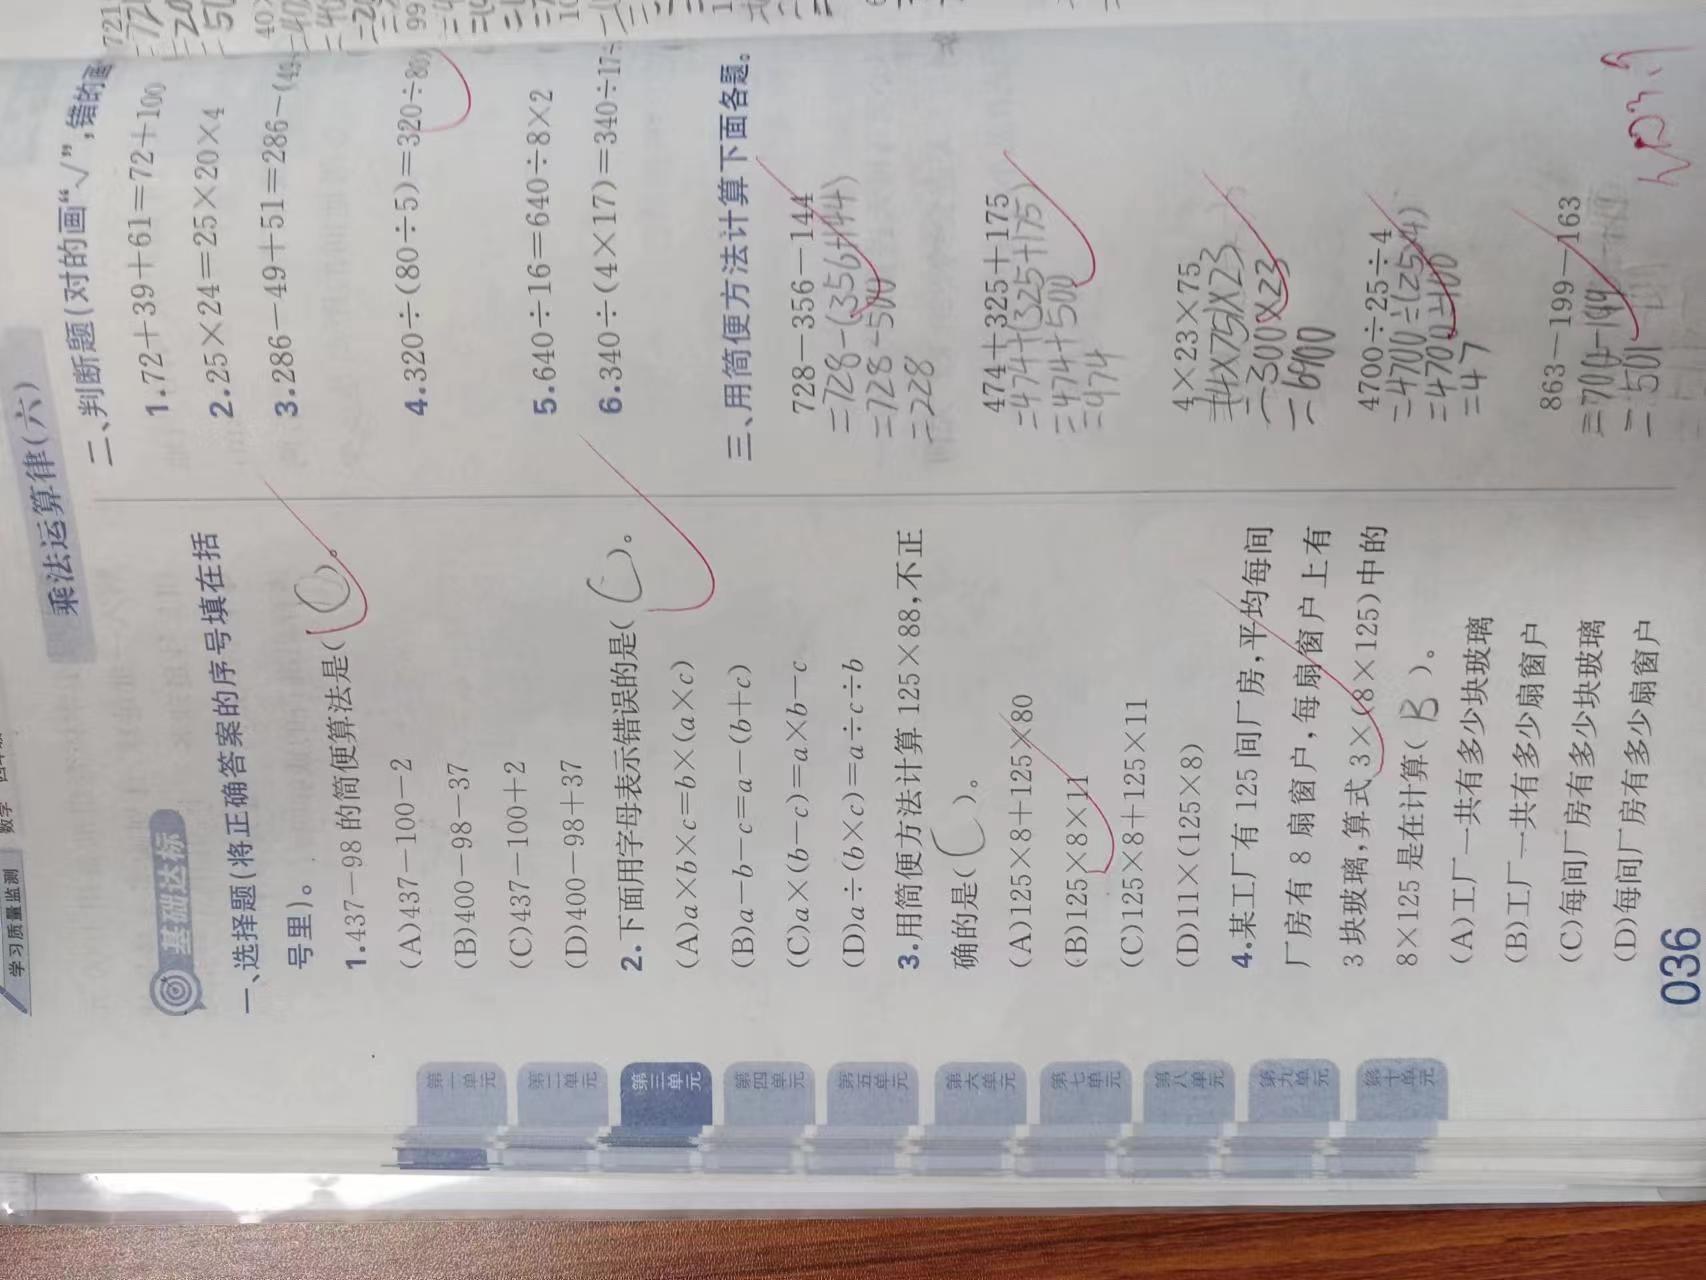 学习质量监测 数学
乘法运算律(六)
基础达标
一、选择题(将正确答案的序号填在括
号里)。
1.437-98的简便算法是( C )。
(A)437-100-2
(B)400-98-37
(C)437-100+2
(D)400-98+37
2.下面用字母表示错误的是( C )。
(A)a×b×c=b×(a×c)
(B)a-b-c=a-(b+c)
(C)a×(b-c)=a×b-c
(D)a÷(b×c)=a÷c÷b
3.用简便方法计算125×88,不正
确的是( C )。
(A)125×8+125×80
(B)125×8×11
(C)125×8+125×11
(D)11×(125×8)
4.某工厂有125间厂房,平均每间
厂房有8扇窗户,每扇窗户上有
3块玻璃,算式3×(8×125)中的
8×125是在计算( B )。
(A)工厂一共有多少块玻璃
(B)工厂一共有多少扇窗户
(C)每间厂房有多少块玻璃
(D)每间厂房有多少扇窗户
036
二、判断题(对的画“√”,错的画
1.72+39+61=72+100
2.25×24=25×20×4
3.286-49+51=286-(49+
4.320÷(80÷5)=320÷80
5.640÷16=640÷8×2
6.340÷(4×17)=340÷17÷
三、用简便方法计算下面各题。
728-356-144
=728-(356+144)
=728-500
=228
474+325+175
=474+(325+175)
=474+500
=474
4×23×75
=(4×75)×23
=300×23
=6900
4700÷25÷4
=4700÷(25×4)
=4700÷100
=47
863-199-163
=700-199
=501
第一单元
第二单元
第三单元
第四单元
第五单元
第六单元
第七单元
第八单元
第九单元
第十单元